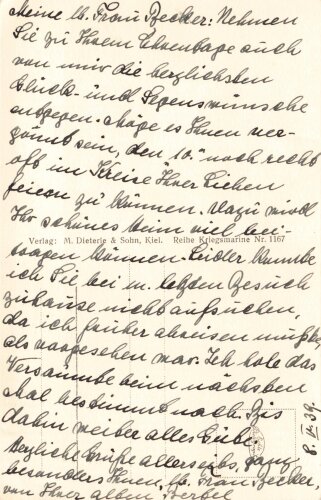 Meine lb. Frau Becker: Nehmen
Sie zu Ihrem Ehrentage auch
von mir die herzlichsten
Glück- und Segenswünsche
entgegen. Möge es Ihnen ver-
gönnt sein, den 10." noch recht
oft im Kreise Ihrer Lieben
feiern zu können. Dazu wird
Ihr schönes Heim viel bei-
Verlag: M. Dieterle & Sohn, Kiel. Reihe Kriegsmarine Nr. 1167
tragen können. Leider konnte
ich Sie bei m. letzten Besuch
zuhause nicht aufsuchen,
da ich früher abreisen mußte,
als vorgesehen war. Ich hole das
Versäumte beim nächsten
Mal bestimmt nach. Bis
dahin weiter alles Gute.
Herzliche Grüße allerseits, ganz
besonders Ihnen, lb. Frau Becker,
von Ihrer alten
8. II. 39.